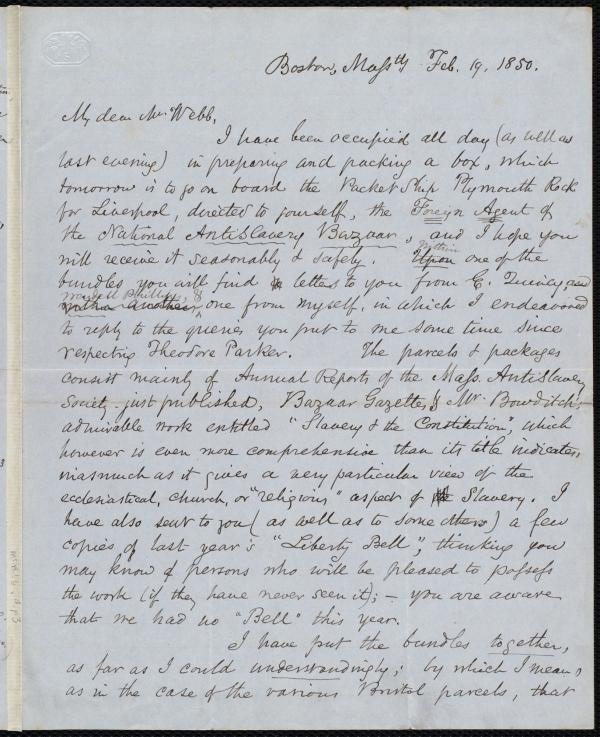 Boston, Massts Feb. 19, 1850.
My dear Mr. Webb,
I have been occupied all day (as well as
last evening) in preparing and packing a box, which
tomorrow is to go on board the Packet Ship Plymouth Rock
for Liverpool, directed to yourself, the Foreign Agent of
the National AntiSlavery Bazaar, and I hope you
will receive it seasonably & safely. Upon within one of the
bundles you will find letters to you from E. Quincy and
Wendell Phillips, &
within another, one from myself, in which I endeavored
to reply to the queries you put to me some time since
respecting Theodore Parker. The parcels & packages
consist mainly of Annual Reports of the Mass. AntiSlavery
Society just published, Bazaar Gazettes, & Mr. Bowditch's
admirable work entitled "Slavery & the Constitution", which
however is even more comprehensive than its title indicates,
inasmuch as it gives a very particular view of the
ecclesiastical, church, or "religious" aspect of Slavery. I
have also sent to you (as well as to some others) a few
copies of last year's "Liberty Bell", thinking you
may know of persons who will be pleased to possess
the work (if they have never seen it); – you are aware
that we had no "Bell" this year.
I have put the bundles together,
as far as I could understandingly; by which I mean,
as in the case of the various Bristol parcels, that